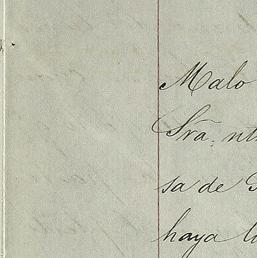 Malo
Sra. nt
sa de
haya